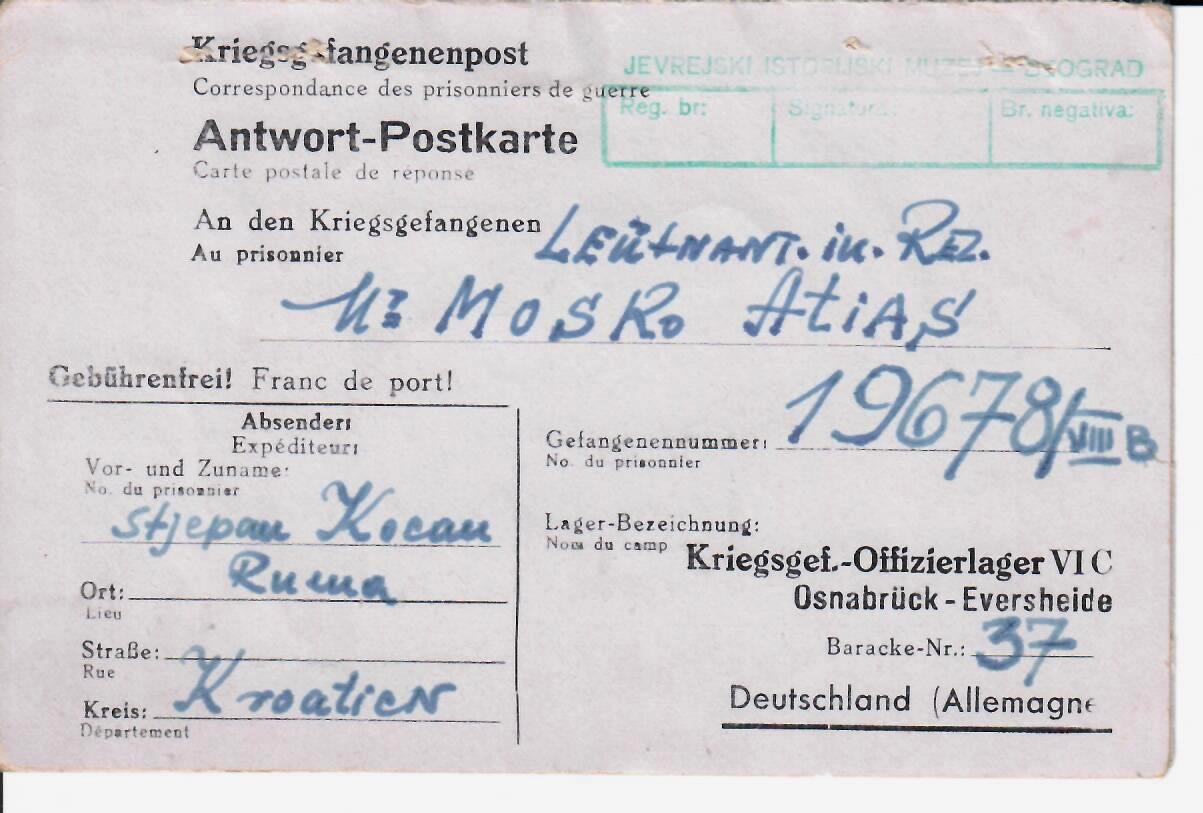 Kriegsgefangenenpost
Correspondance des prisonniers de guerre
JEVREJSKI ISTORIJSKI MUZEJ — BEOGRAD
Reg. br: Signatura: Br. negativa:
Antwort-Postkarte
Carte postale de réponse
An den Kriegsgefangenen
Au prisonnier
Leutnant. in. Rez.
Mosko Atias
Gebührenfrei! Franc de port!
Absender:
Expéditeur:
Vor- und Zuname:
No. du prisonnier
Stjepan Kocan
Ort: Ruma
Lieu
Straße:
Rue
Kreis: Kroatien
Département
Gefangenennummer: 19678/VIII B
No. du prisonnier
Lager-Bezeichnung:
Nom du camp
Kriegsgef.-Offizierlager VI C
Osnabrück - Eversheide
Baracke-Nr.: 37
Deutschland (Allemagne